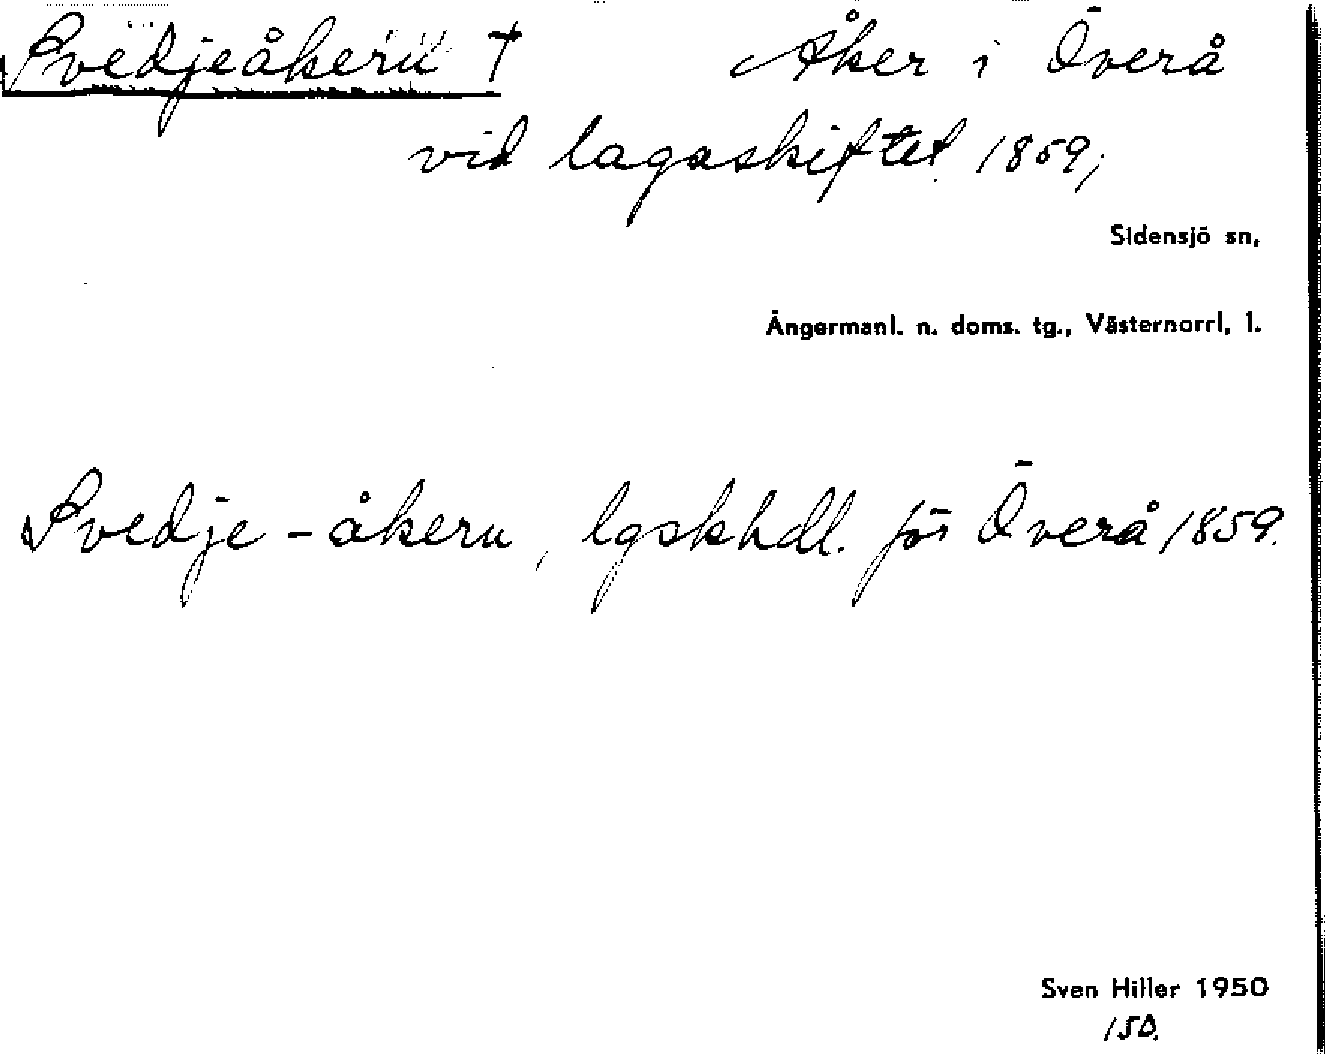 Svedjeåkern † Åker i Överå
vid lagaskiftet 1859;
Sidensjö sn,
Ångermanl. n. doms. tg., Västernorrl, l.
Svedje-åkern, lgskhdl. för Överå 1859.
Sven Hiller 1950
150.